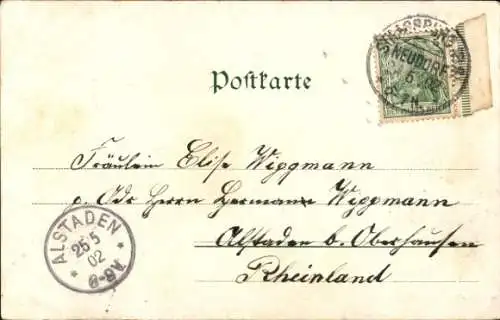 STRASSBURG
NEUDORF
Postkarte
Fräulein Elise Wiggmann
p. Adr Herrn Hermann Wiggmann
Alstaden b. Oberhausen
Rheinland
ALSTADEN
25 5
02
8-9V.